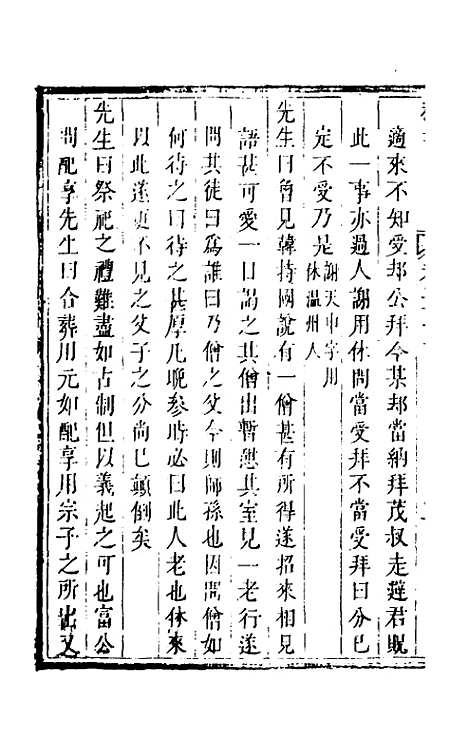 適來不知受却公拜今某却當納拜茂叔走避君貺
此一事亦過人謝用休問當受拜不當受拜曰分已
定不受乃是謝天申字用休溫州人
先生曰曾見韓持國說有一僧甚有所得遂招來相見
語甚可愛一日謁之其僧出暫憇其室見一老行遂
問其徒曰爲誰曰乃僧之父今則師孫也因問僧如
何待之曰待之甚厚凡晩參時必曰此人老也休來
以此遂更不見之父子之分尚已顛倒矣
先生曰祭祀之禮難盡如古制但以義起之可也富公
問配享先生曰合葬用元妃配享用宗子之所出又